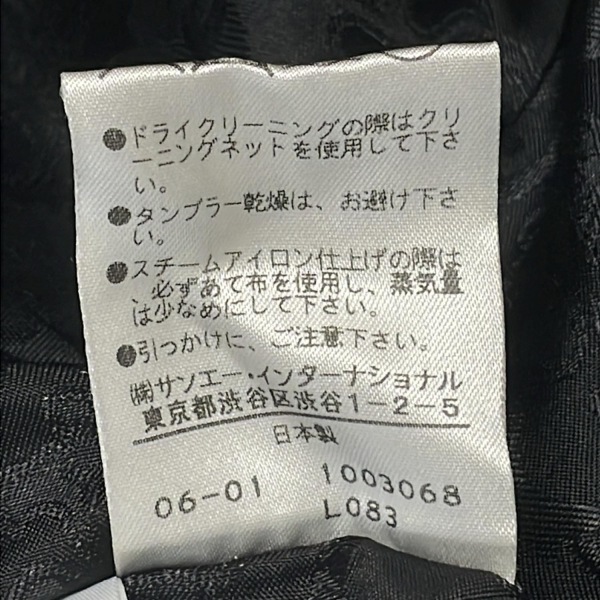 ●ドライクリーニングの際はクリ
ーニングネットを使用して下さ
い。
●タンブラー乾燥は、お避け下さ
い。
●スチームアイロン仕上げの際は
、必ずあて布を使用し、蒸気量
は少なめにして下さい。
●引っかけに、ご注意下さい。
㈱サンエー・インターナショナル
東京都渋谷区渋谷1-2-5
日本製
06-01 1003068
L083